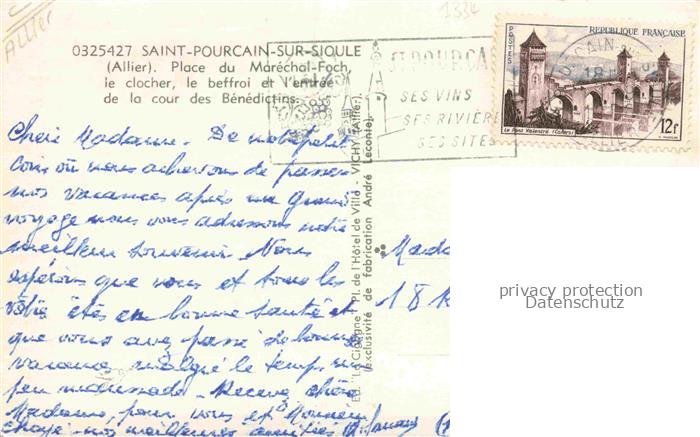 Allier
1334
0325427 SAINT-POURCAIN-SUR-SIOULE
(Allier). Place du Maréchal-Foch,
le clocher, le beffroi et l'entrée
de la cour des Bénédictins.
ST POURÇAI
SES VINS
SES RIVIÈRE
SES SITES
REPUBLIQUE FRANÇAISE
POSTES
Le Pont Valentré (Cahors)
12F
Chère Madame. De notre petit
coin où nous achevons de passer
nos vacances après un grand
voyage nous vous adressons notre
meilleur souvenir. Nous
espérons que vous et tous les
vôtre êtes en bonne santé et
que vous avez passé de bonnes
vacances malgré le temps un
peu maussade. Recevez, chère
Madame, pour vous et Monsieur
nos meilleures amitiés
Ed. "La Cigogne", Pl. de l'Hôtel de Ville - VICHY (Allier).
(exclusivité de fabrication André Leconte).
Mada
18 R
privacy protection
Datenschutz